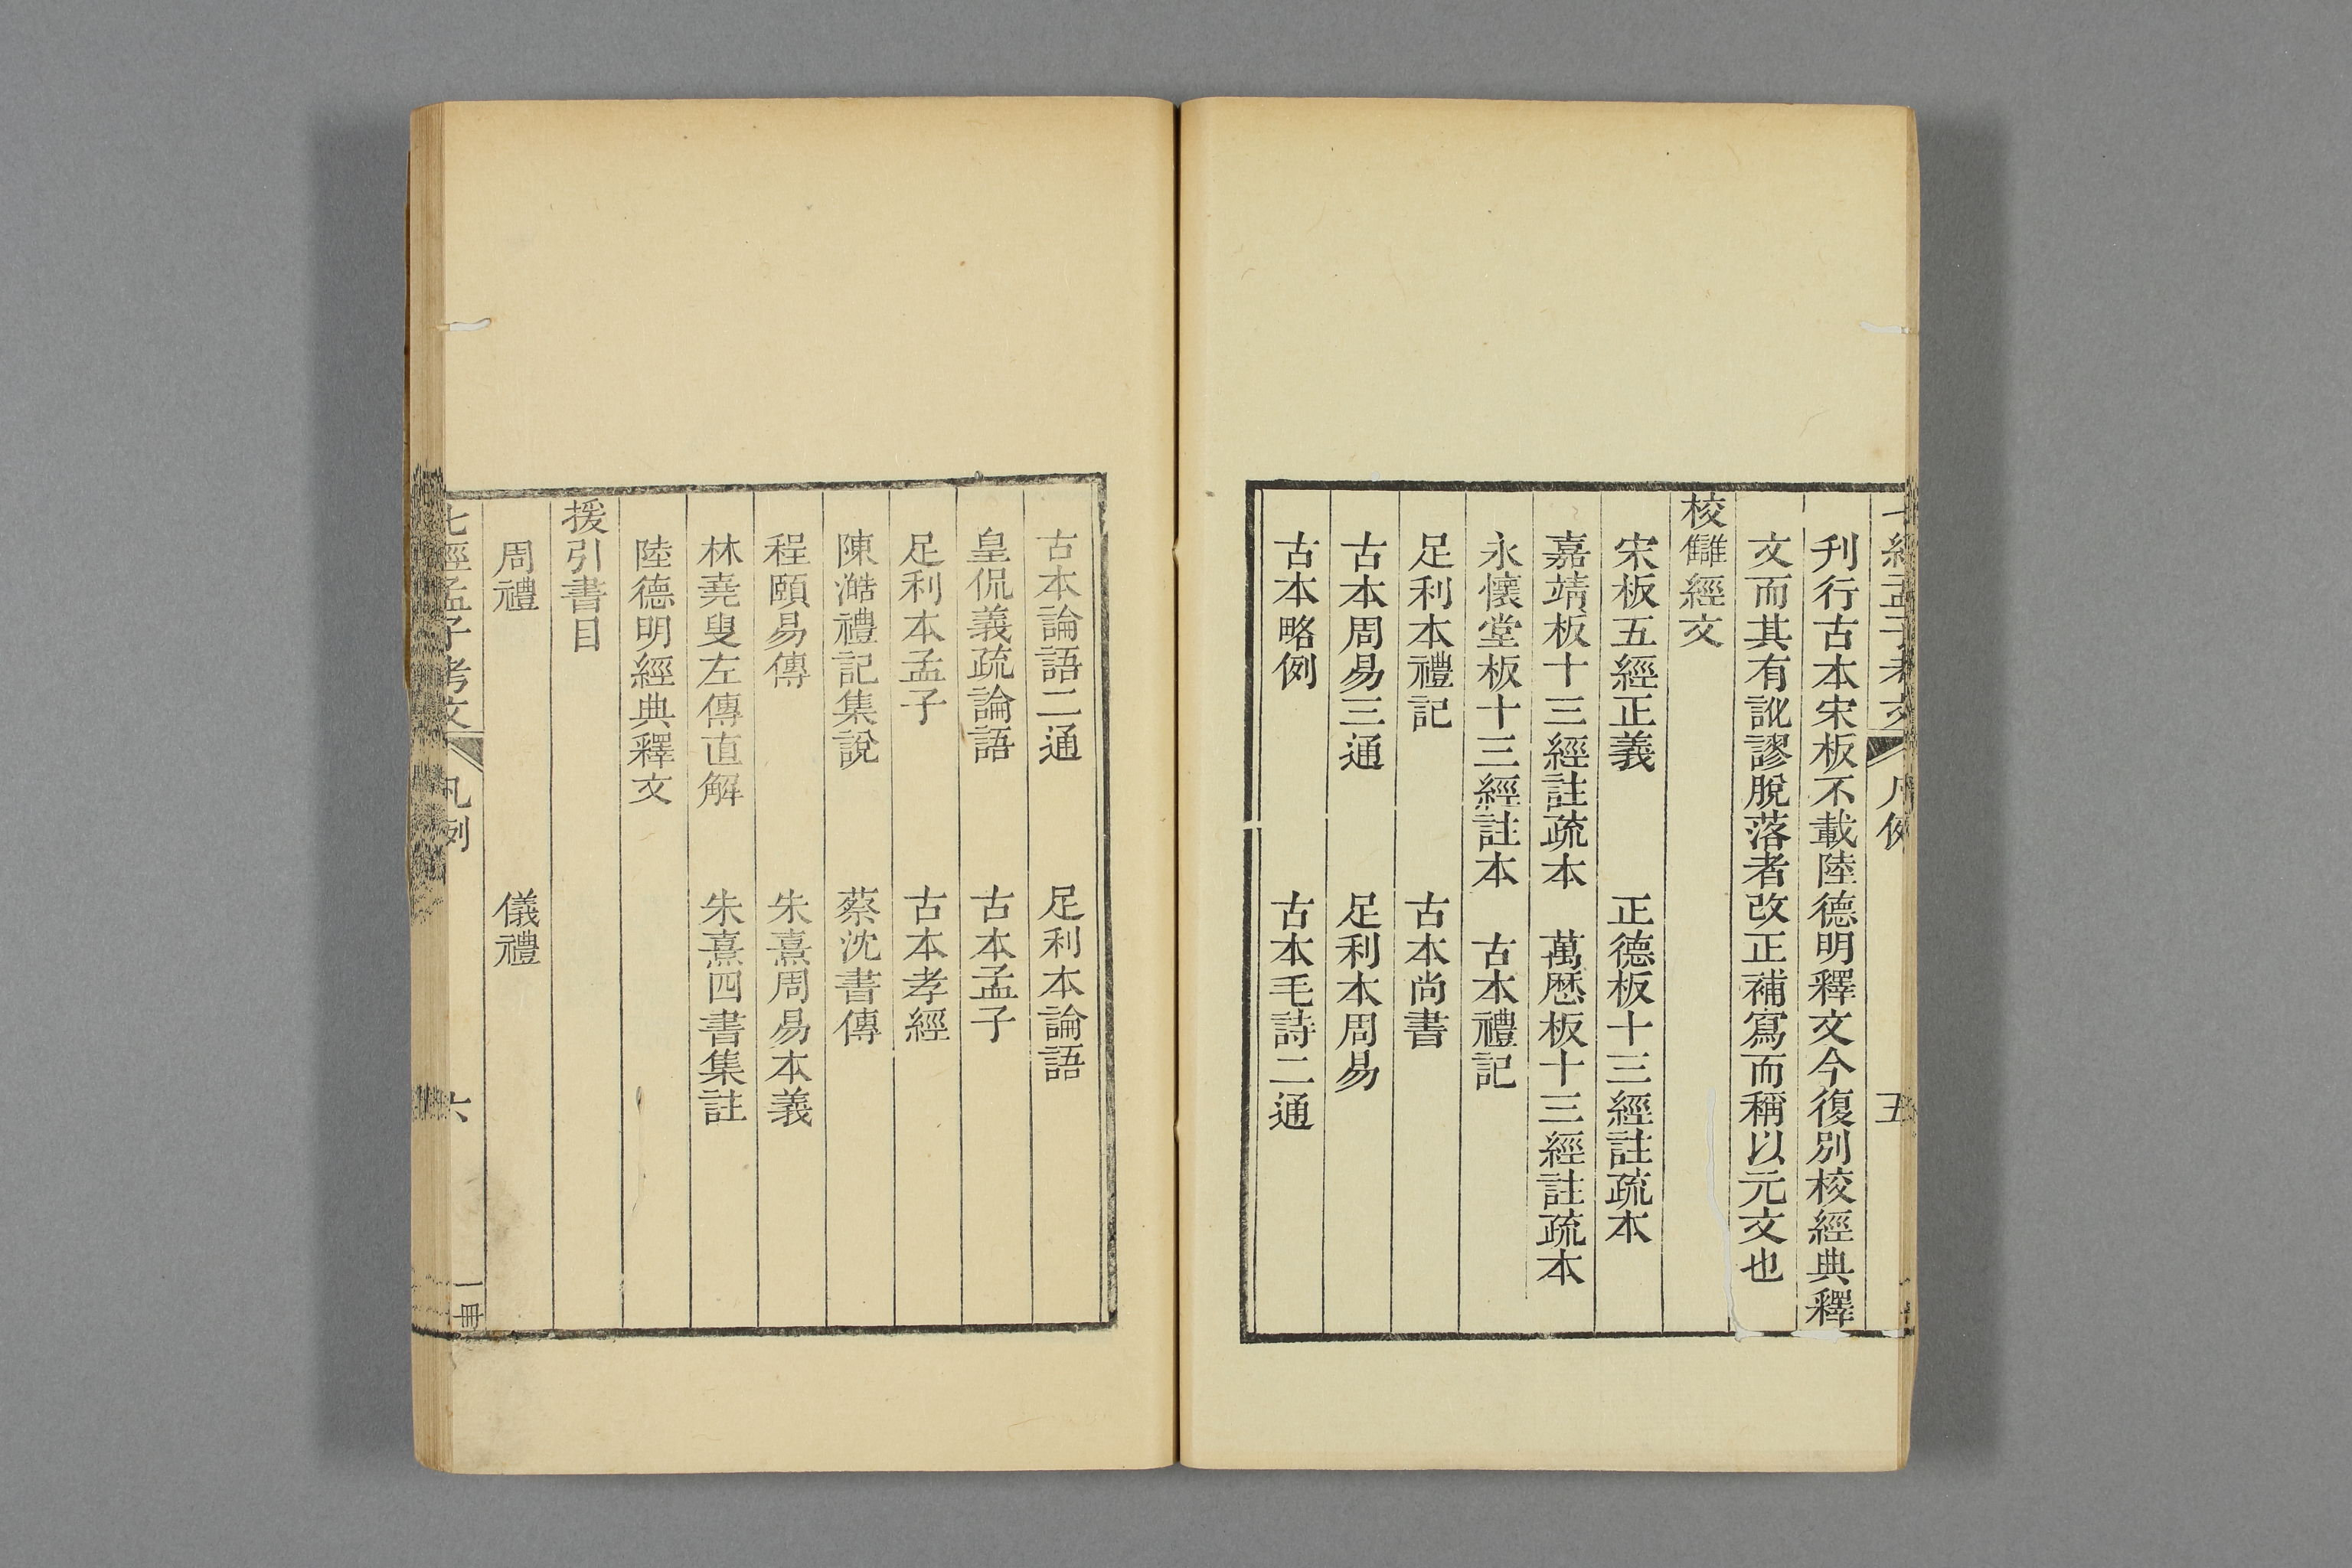 七經孟子考文 凡例 五
刋行古本宋板不載陸德明釋文今復別校經典釋
文而其有訛謬脫落者改正補寫而稱以元文也
校讎經文
宋板五經正義 正德板十三經註疏本
嘉靖板十三經註疏本 萬曆板十三經註疏本
永懷堂板十三經註本 古本禮記
足利本禮記 古本尚書
古本周易三通 足利本周易
古本略例 古本毛詩二通
古本論語二通 足利本論語
皇侃義疏論語 古本孟子
足利本孟子 古本孝經
陳澔禮記集說 蔡沈書傳
程頤易傳 朱熹周易本義
林堯叟左傳直解 朱熹四書集註
陸德明經典釋文
援引書目
周禮 儀禮
七經孟子考文 凡例 六 一冊